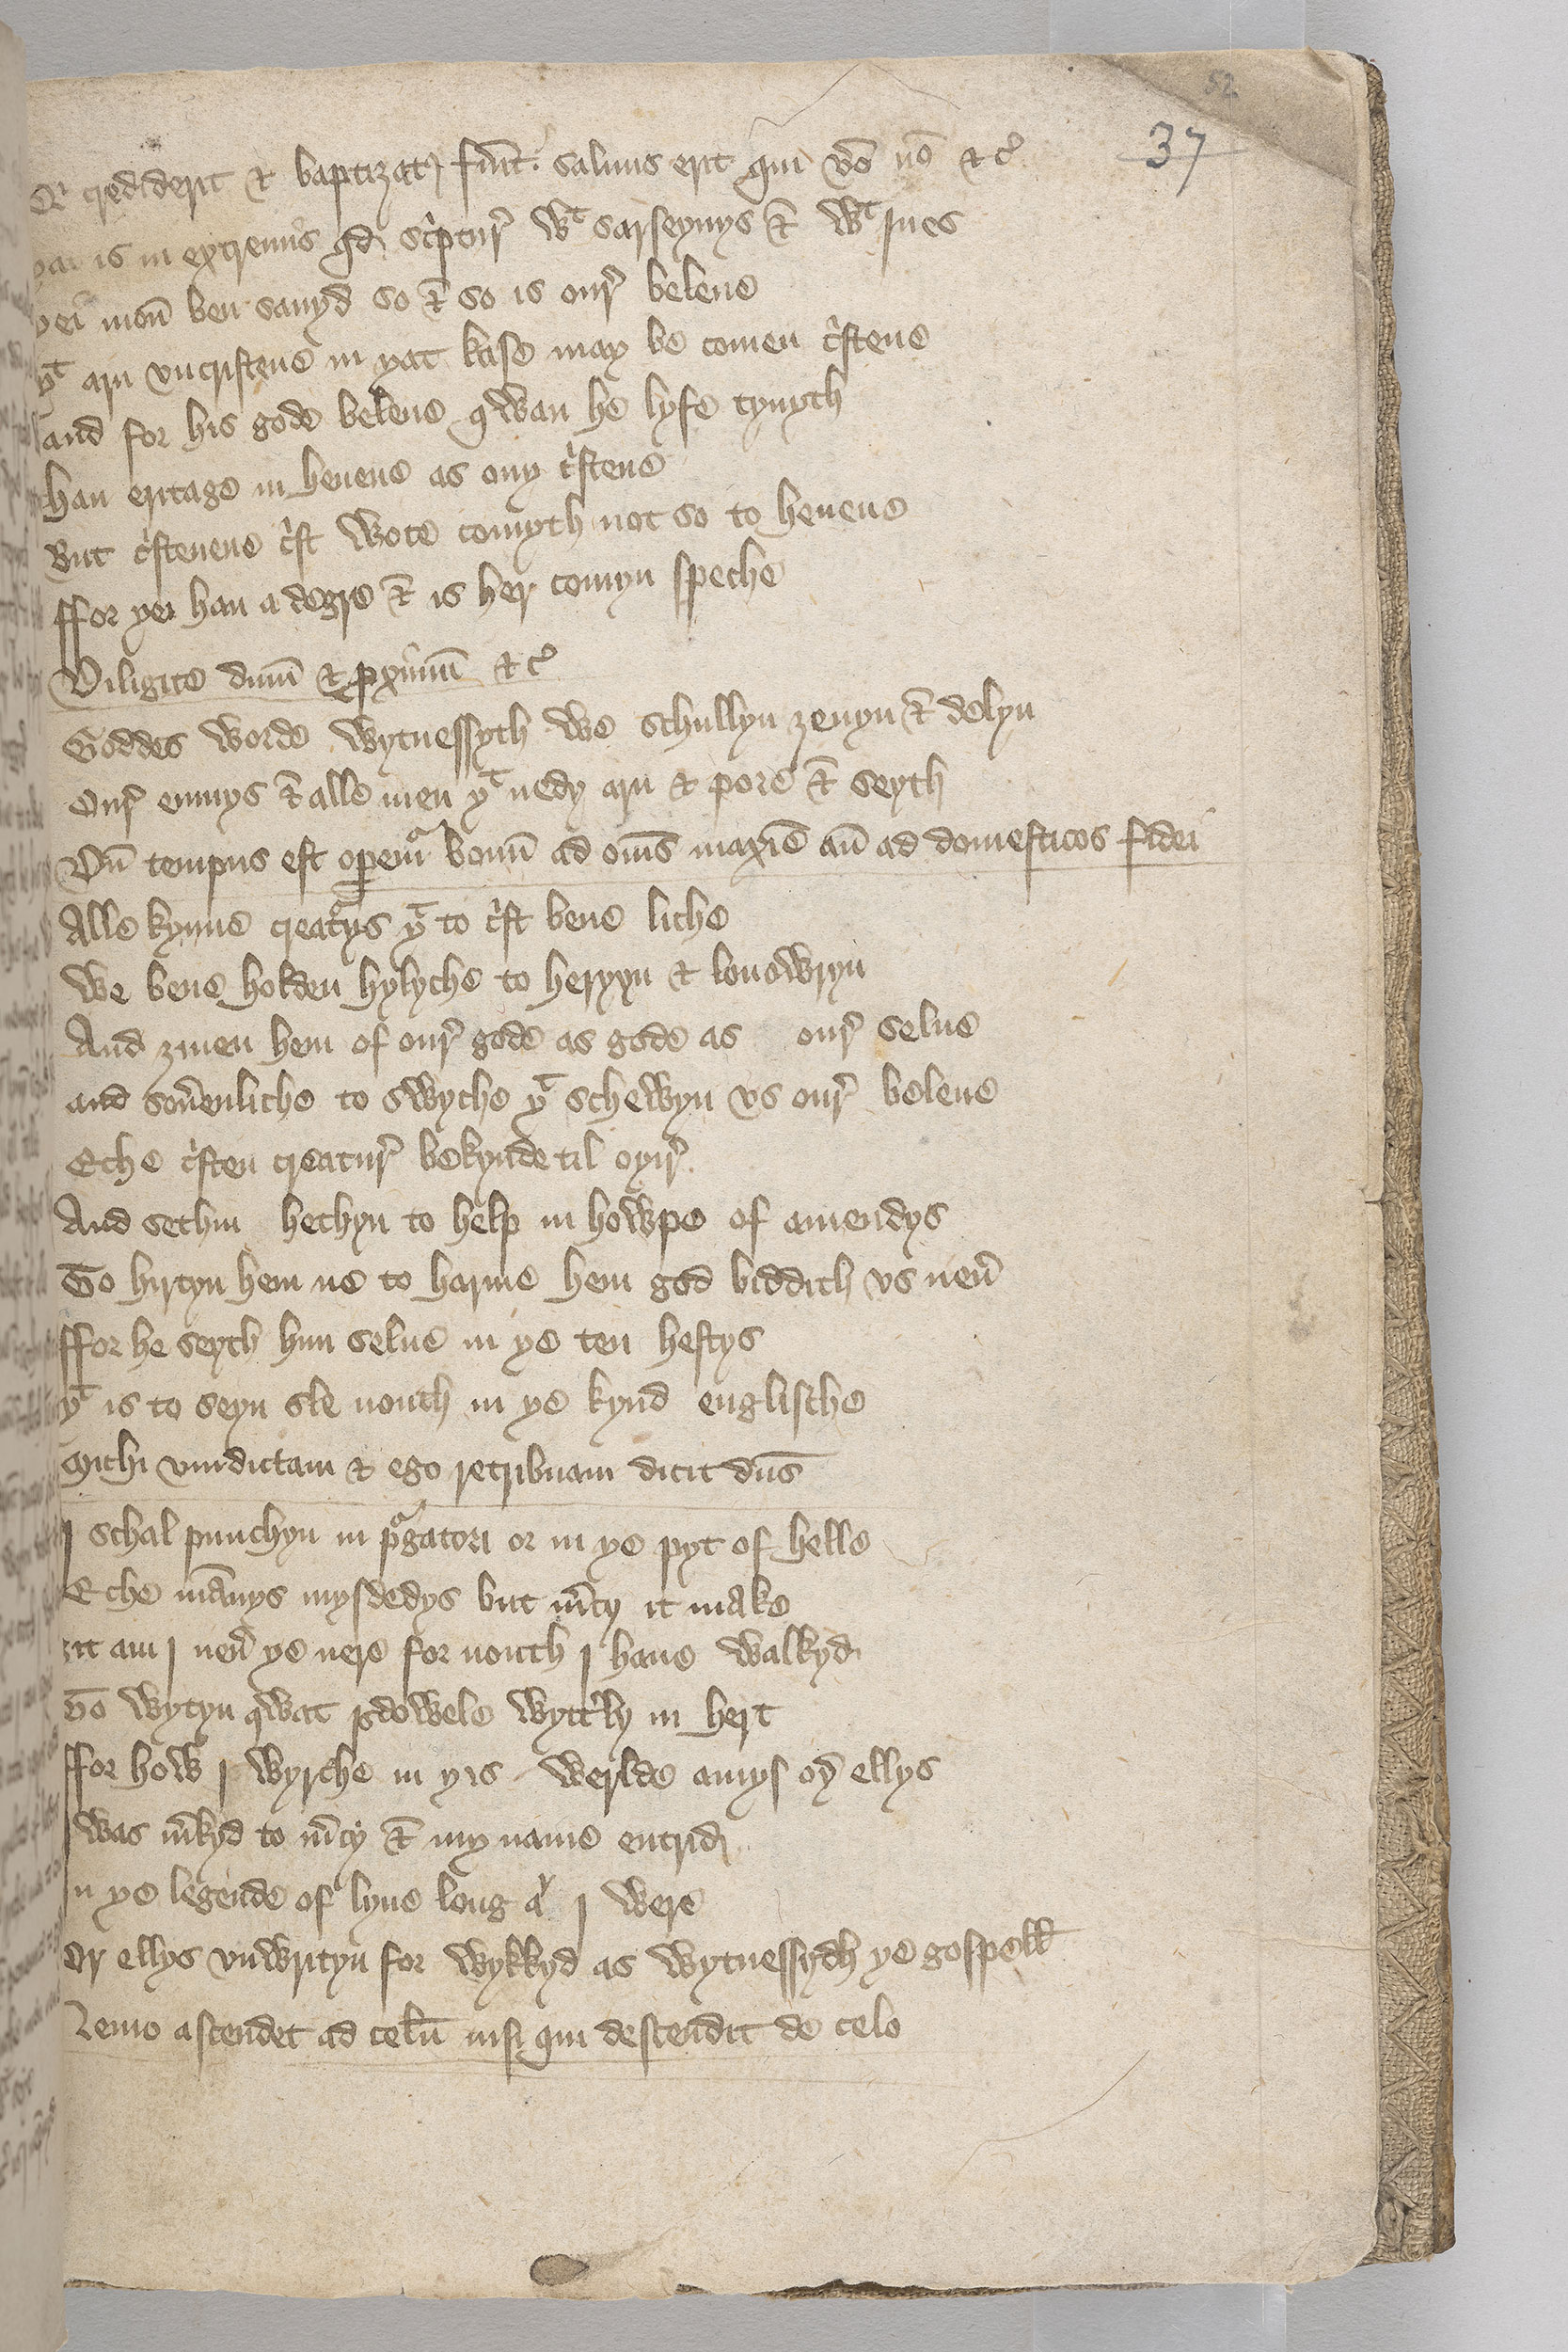 52
37
Qi crediderit & baptizatꝰ fuit͛. saluus erit qui vō nō & cͣ
yat is in extremis qd scͥptur͛ wᵗ sarseynys & wᵗ Iues
yei mou ben sauyd so & so is our͛ beleue
yᵗ arn vncristene in yat kase may be comen cͥstene
and for his gode beleue qwan he lyfe tynyth
han eritage in heuene as ony cͥstene
But cͥstenene cͥst wote comyth not so to heuene
ffor yei han a degre & is her comyn speche
Diligite dnm̄ & ꝓximū & cͣ
Goddes worde wytnessyth we schullyn zeuyn & delyn
Our͛ enmys & alle men yᵗ nedy arn & pore & seyth
Dū tempus est operemͣ bonū ad oīns maxīe aū ad domesticos fidei
Alle kynne creatͣys yᵗ to cͥst bene liche
We bene holden hylyche to heryyn & louowryn
And ziuen hem of our͛ gode as gode as our͛ selue
and sou͛enliche to swyche yᵗ schewyn vs our͛ beleue
Eche cͥsten creatur͛ bekynde til oyir͛
And sethin hethyn to help in howpe of amendys
To hirtyn hem ne to harme hem god biddith vs neu͛
ffor he seyth him selue in ye ten hestys
yᵗ is to seyn sle nouth in ye kynd englische
Michi vindictam & ego retribuam dicit dns̄
I schal punchyn in pͬgatori or in ye pyt of helle
Eche mānys mysdedys but m͛cy it make
zit am I neu͛ ye nere for nouth I haue walkyd
To wytyn qwat is dowele wytt͛ly in hert
ffor how I wyrche in yis werlde amys oy͛ ellys
I was m͛kyd to m͛cy & my name entrid
In ye legende of lyue long aʳ I were
Or ellys vnwrityn for wykkyd as wytnessydh ye gospell
Nemo ascendet ad celū nisi qui descendit de celo